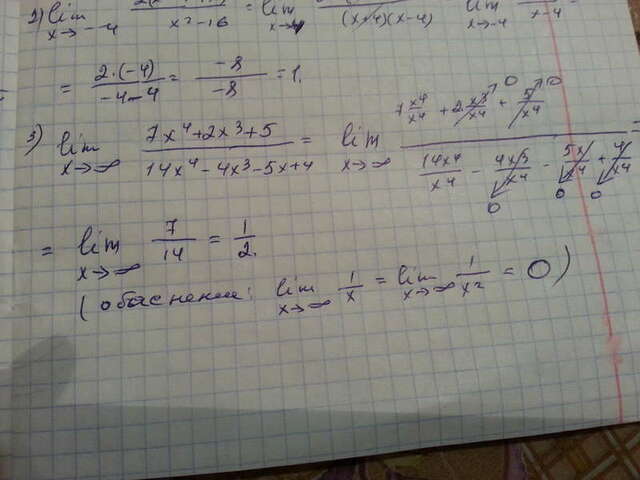 2) lim x→-4 / x²-16 = lim x→4 / (x+4)(x-4) lim x→-4 / x-4 =
= 2·(-4) / -4-4 = -8 / -8 = 1.
3) lim x→∞ 7x⁴+2x³+5 / 14x⁴-4x³-5x+4 = lim x→∞ 7x⁴/x⁴ + 2x³/x⁴ →0 + 5/x⁴ →0 / 14x⁴/x⁴ - 4x³/x⁴ →0 - 5x/x⁴ →0 + 4/x⁴ →0 =
= lim x→∞ 7/14 = 1/2.
(обяснение: lim x→∞ 1/x = lim x→∞ 1/x² = 0)